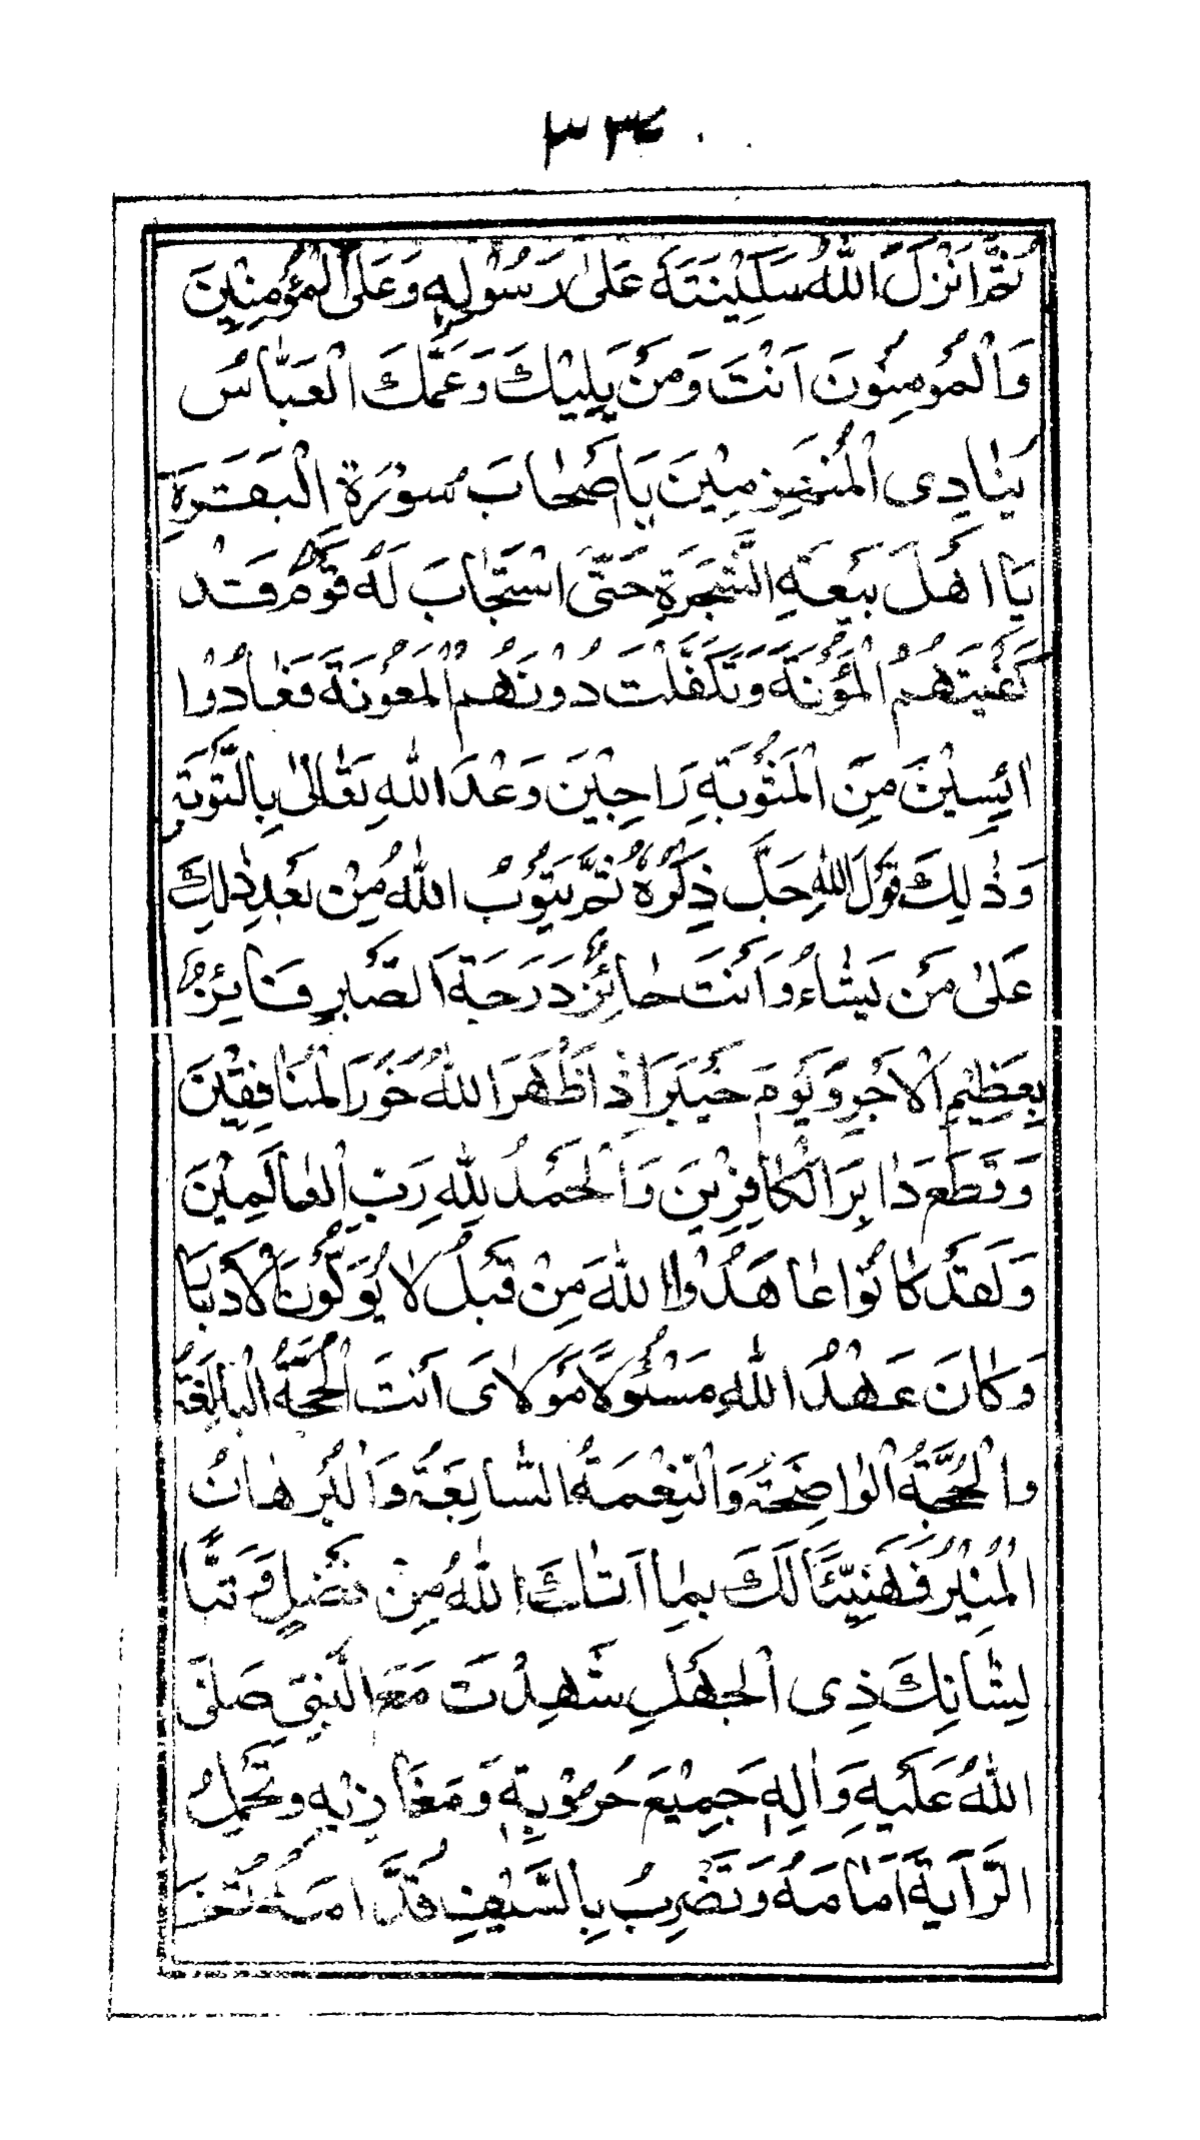 ثُمَّ اَنْزَلَ اللهُ سَكِيْنَتَهُ عَلىٰ رَسُوْلِهِ وَعَلَى الْمُؤْمِنِيْنَ
وَالْمُؤْمِنُونَ اَنْتَ وَمَنْ يَلِيْكَ وَعَمُّكَ الْعَبَّاسُ
يُنٰادِى الْمُنْهَزِمِيْنَ يٰا اَصْحٰابَ سُوْرَةِ الْبَقَرَةِ
يٰا اَهْلَ بَيْعَةِ الشَّجَرَةِ حَتَّى اسْتَجٰابَ لَهُ قَوْمٌ قَدْ
كَفَيْتَهُمُ الْمَؤُنَةَ وَتَكَفَّلْتَ دُوْنَهُمُ الْمَعُوْنَةَ فَعٰادُوْا
اٰئِسِيْنَ مِنَ الْمَثُوْبَةِ رَاجِيْنَ وَعْدَ اللهِ تَعٰالىٰ بِالتَّوْبَةِ
وَذٰلِكَ قَوْلُ اللهِ جَلَّ ذِكْرُهُ ثُمَّ يَتُوْبُ اللهُ مِنْ بَعْدِ ذٰلِكَ
عَلىٰ مَنْ يَشٰاءُ وَاَنْتَ حٰائِزٌ دَرَجَةَ الصَّبْرِ فَائِزٌ
بِعَظِيْمِ الْاَجْرِ وَيَوْمَ خَيْبَرَ اِذْ اَظْهَرَ اللهُ خَوَرَ الْمُنَافِقِيْنَ
وَقَطَعَ دٰابِرَ الْكٰافِرِيْنَ وَالْحَمْدُ لِلّٰهِ رَبِّ الْعٰالَمِيْنَ
وَلَقَدْ كٰانُوْا عٰاهَدُوا اللهَ مِنْ قَبْلُ لَا يُوَلُّوْنَ الْاَدْبٰا
وَكٰانَ عَهْدُ اللهِ مَسْئُوْلًا مَوْلَاىَ اَنْتَ الْحُجَّةُ الْبٰالِغَةُ
وَالْحُجَّةُ الْوٰاضِحَةُ وَالنِّعْمَةُ السَّابِغَةُ وَالْبُرْهٰانُ
الْمُنِيْرُ فَهَنِيْئًا لَكَ بِمٰا اٰتٰاكَ اللهُ مِنْ فَضْلٍ وَتَبًّا
لِشٰانِئِكَ ذِى الْجَهْلِ شَهِدْتَ مَعَ النَّبِيِّ صَلَّى
اللهُ عَلَيْهِ وَاٰلِهِ جَمِيْعَ حُرُوْبِهِ وَمَغَازِيْهِ وَتَحْمِلُ
الرَّايَةَ اَمٰامَهُ وَتَضْرِبُ بِالسَّيْفِ قُدَّامَهُ